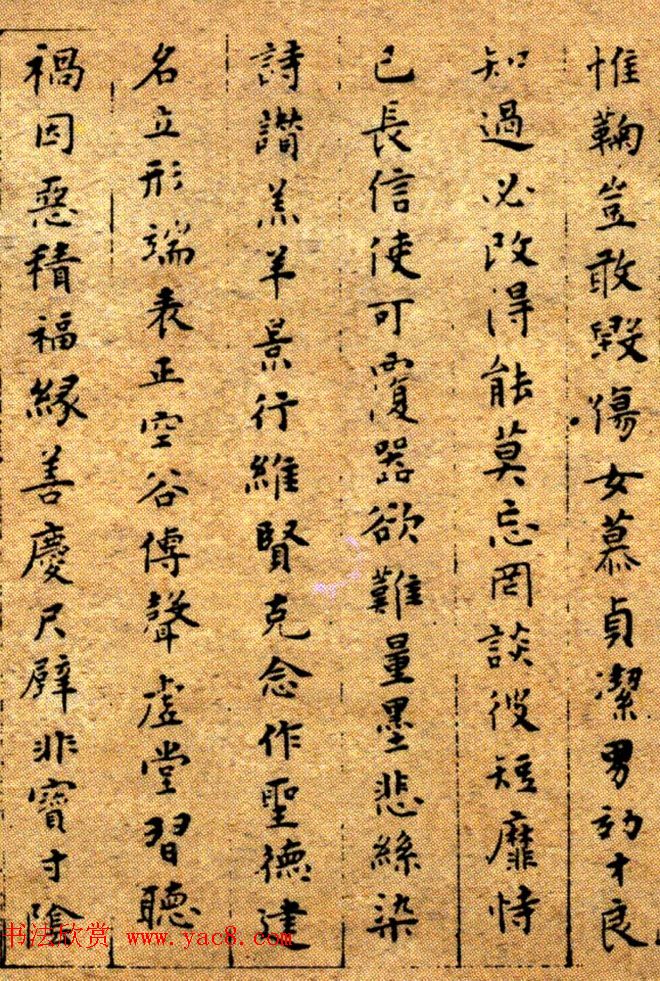 惟鞠豈敢毀傷女慕貞潔男効才良
知過必改得能莫忘罔談彼短靡恃
已長信使可覆器欲難量墨悲絲染
詩讃羔羊景行維賢克念作聖德建
名立形端表正空谷傳聲虛堂習聽
禍因惡積福緣善慶尺璧非寶寸陰
书法欣赏 www.yac8.com